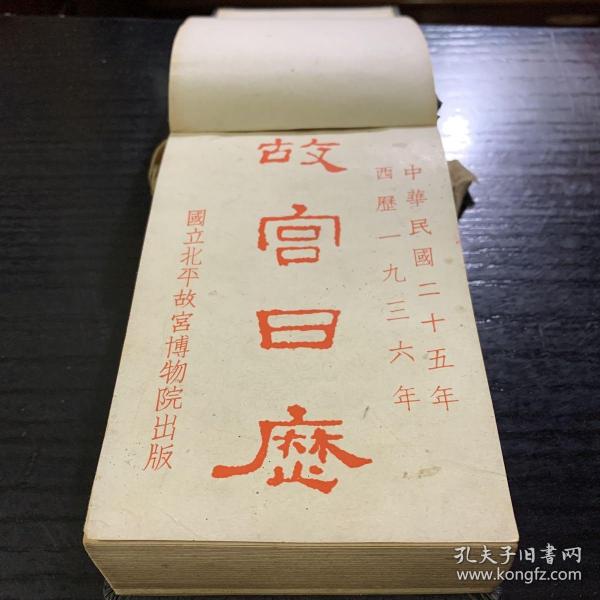 中華民國二十五年
西歷一九三六年
故宮日歷
國立北平故宮博物院出版
孔夫子旧书网
www.kongfz.com